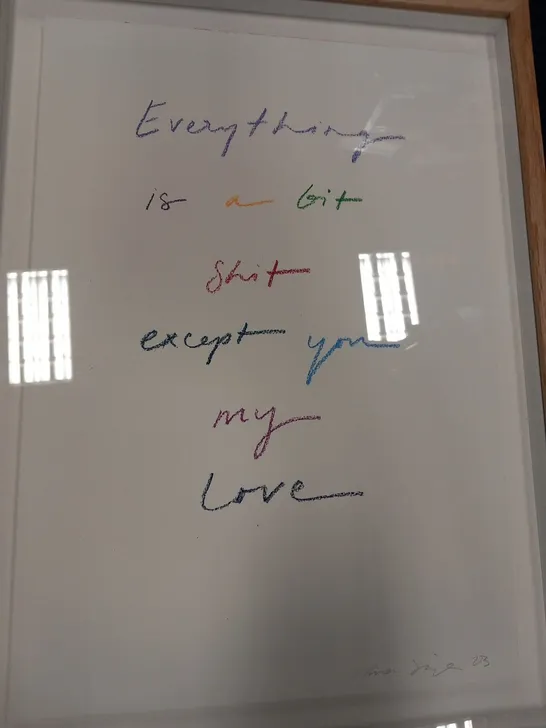 Everything
is a bit
shit
except you
my
love
'23